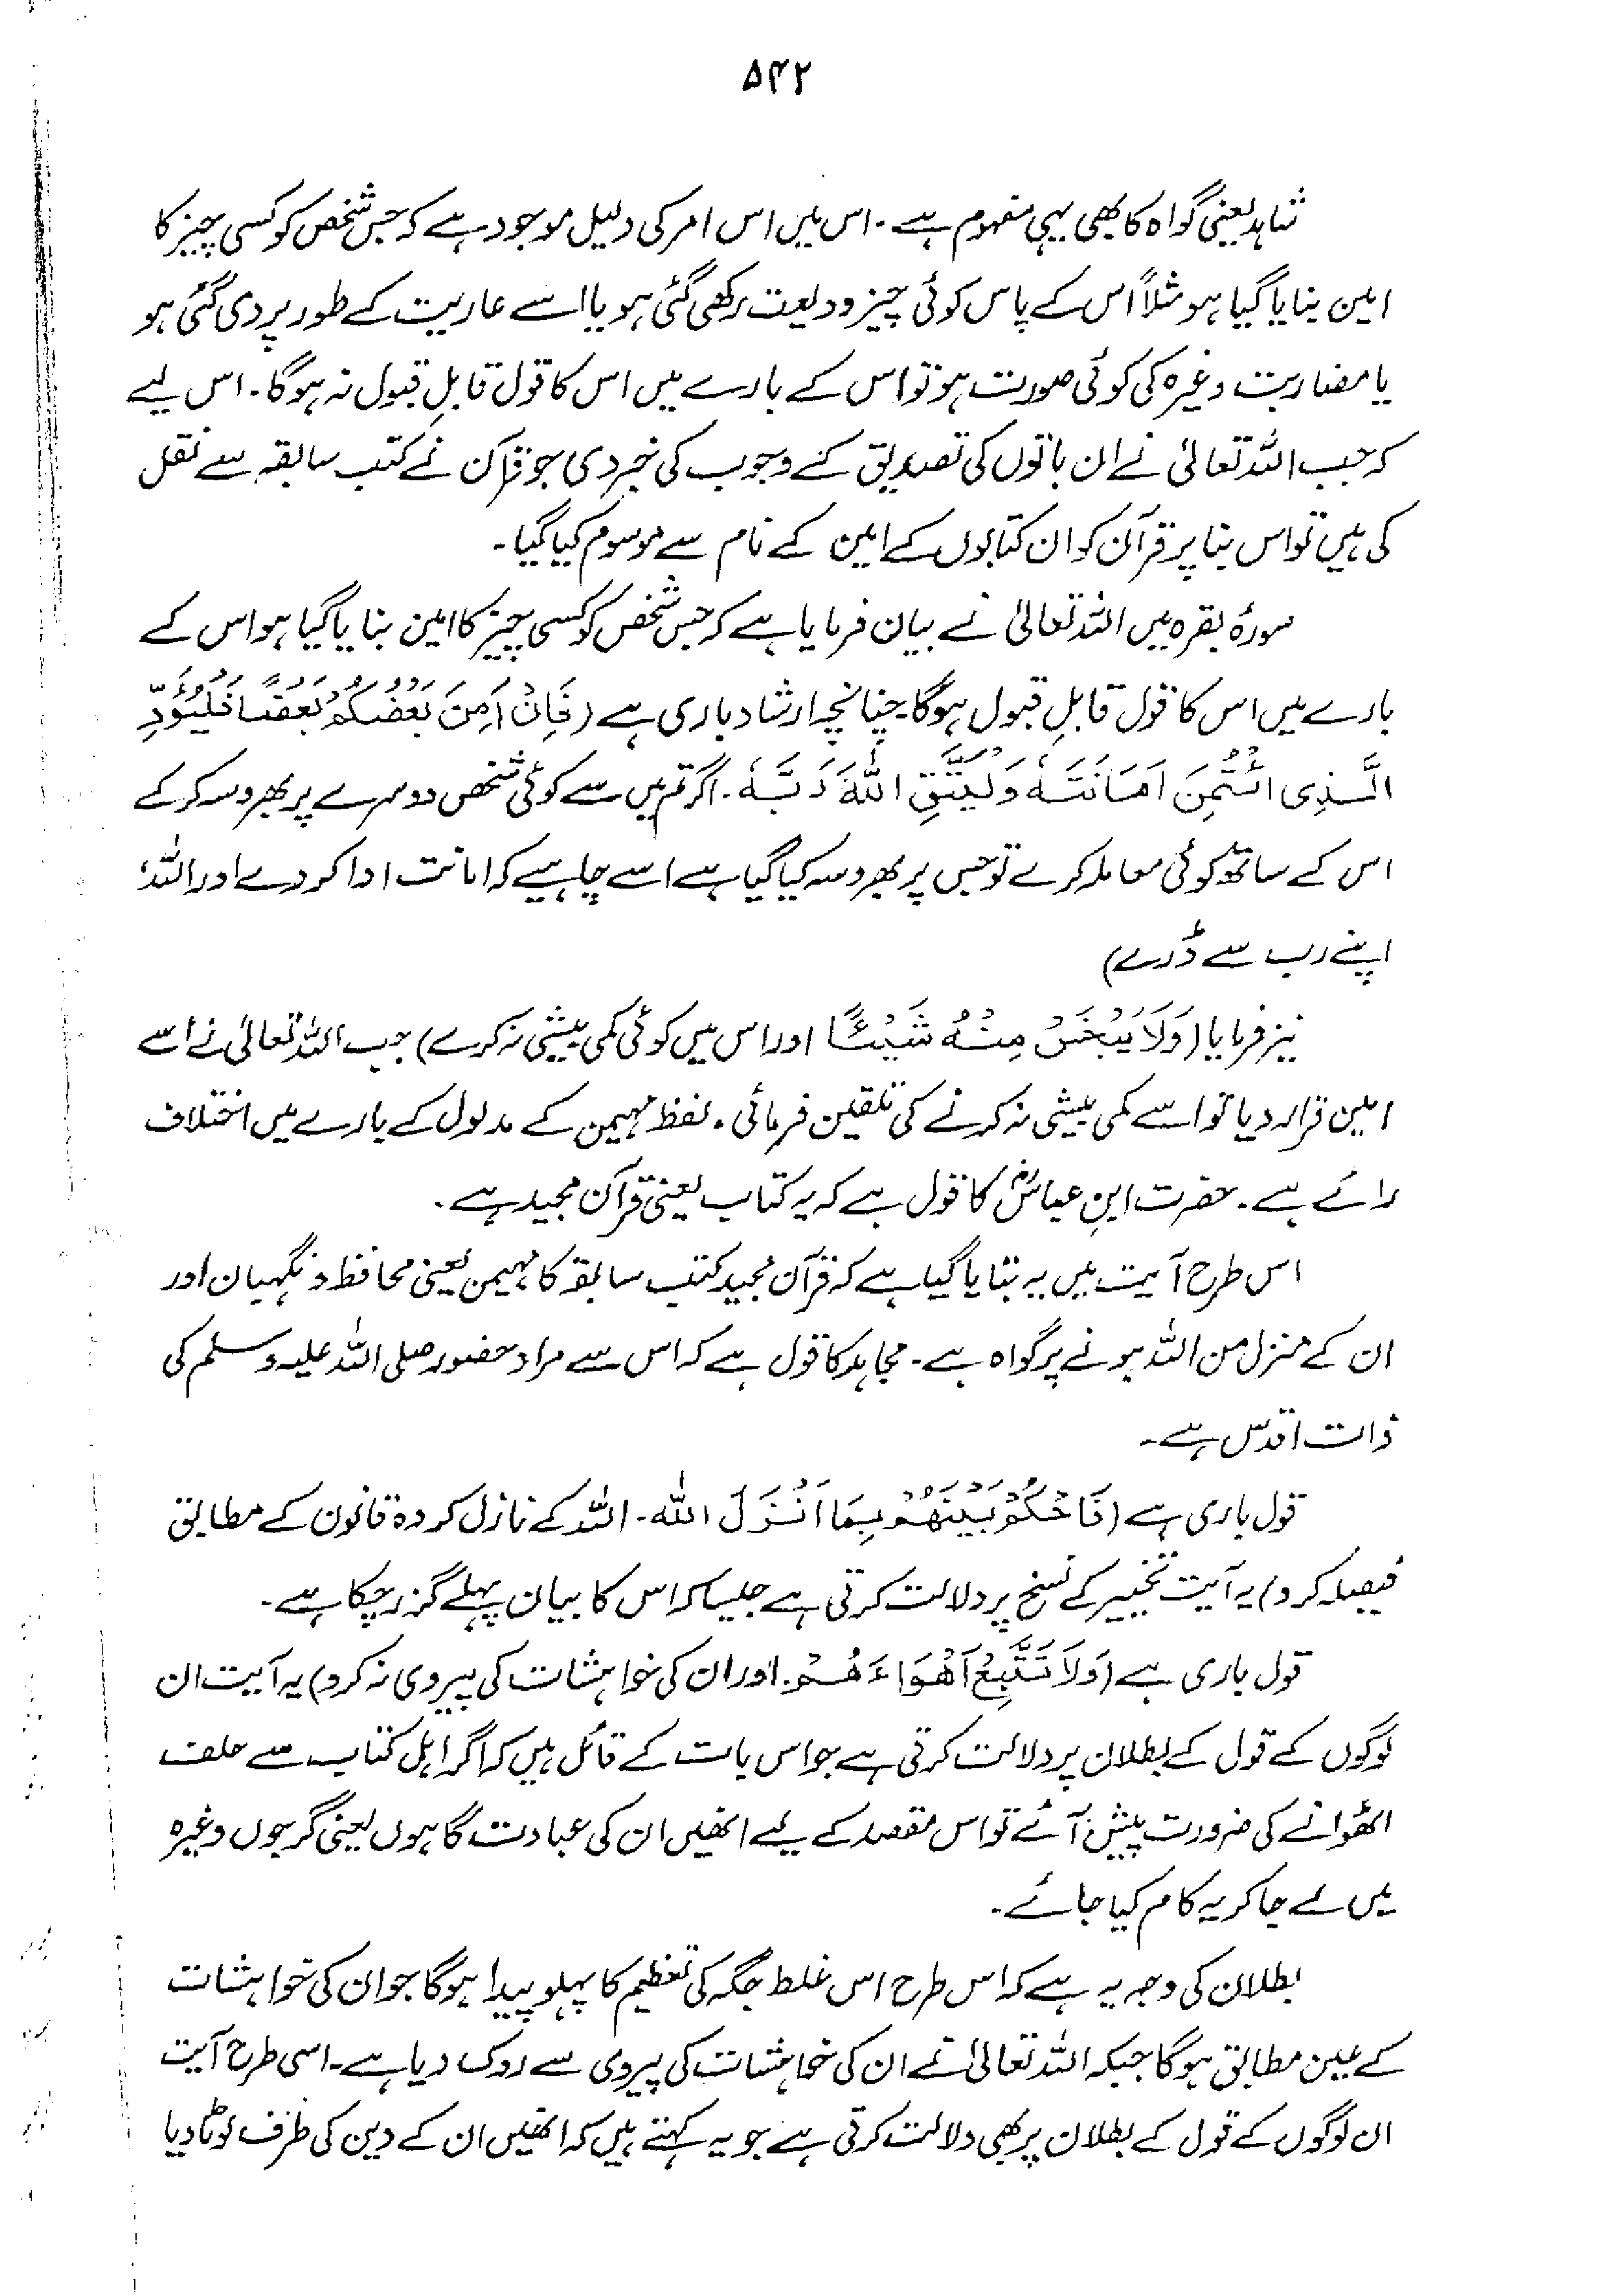 ۵۴۲
شاہد یعنی گواہ کا بھی یہی مفہوم ہے۔ اس میں اس امر کی دلیل موجود ہے کہ جس شخص کو کسی چیز کا
امین بنایا گیا ہو مثلاً اس کے پاس کوئی چیز ودیعت رکھی گئی ہو یا اسے عاریت کے طور پر دی گئی ہو
یا مضاربت وغیرہ کی کوئی صورت ہو تو اس کے بارے میں اس کا قول قابلِ قبول نہ ہوگا۔ اس لیے
کہ جب اللہ تعالیٰ نے ان باتوں کی تصدیق کے وجوب کی خبر دی جو قرآن نے کتب سابقہ سے نقل
کی ہیں تو اس بنا پر قرآن کو ان کتابوں کے امین کے نام سے موسوم کیا گیا۔
سورۂ بقرہ میں اللہ تعالیٰ نے بیان فرمایا ہے کہ جس شخص کو کسی چیز کا امین بنایا گیا ہو اس کے
بارے میں اس کا قول قابلِ قبول ہوگا چنانچہ ارشاد باری ہے (فَاِنْ اَمِنَ بَعْضُكُمْ بَعْضًا فَلْيُؤَدِّ
الَّذِى ائْتُمِنَ اَمَانَتَهٗ وَلْيَتَّقِ اللّٰهَ رَبَّهٗ۔ اگر تم میں سے کوئی شخص دوسرے پر بھروسہ کر کے
اس کے ساتھ کوئی معاملہ کرے تو جس پر بھروسہ کیا گیا ہے اسے چاہیے کہ امانت ادا کر دے اور اللہ،
اپنے رب سے ڈرے)
نیز فرمایا (وَلَا يَبْخَسْ مِنْهُ شَيْئًا اور اس میں کوئی کمی بیشی نہ کرے) جب اللہ تعالیٰ نے اُسے
امین قرار دیا تو اسے کمی بیشی نہ کرنے کی تلقین فرمائی۔ لفظ مہیمن کے مدلول کے بارے میں اختلاف
رائے ہے۔ حضرت ابنِ عباسؓ کا قول ہے کہ یہ کتاب یعنی قرآن مجید ہے۔
اس طرح آیت میں یہ بتایا گیا ہے کہ قرآن مجید کتب سابقہ کا مہیمن یعنی محافظ و نگہبان اور
ان کے منزل من اللہ ہونے پر گواہ ہے۔ مجاہد کا قول ہے کہ اس سے مراد حضور صلی اللہ علیہ وسلم کی
ذات اقدس ہے۔
قول باری ہے (فَاحْكُمْ بَيْنَهُمْ بِمَا اَنْزَلَ اللّٰه۔ اللہ کے نازل کردہ قانون کے مطابق
فیصلہ کرو) یہ آیت تخییر کے نسخ پر دلالت کرتی ہے جیسا کہ اس کا بیان پہلے گزر چکا ہے۔
قول باری ہے (وَلَا تَتَّبِعْ اَهْوَاءَهُمْ۔ اور ان کی خواہشات کی پیروی نہ کرو) یہ آیت ان
لوگوں کے قول کے بطلان پر دلالت کرتی ہے جو اس بات کے قائل ہیں کہ اگر اہل کتاب سے حلف
اٹھوانے کی ضرورت پیش آئے تو اس مقصد کے لیے انھیں ان کی عبادت گاہوں یعنی گرجوں وغیرہ
میں لے جا کر یہ کام کیا جائے۔
بطلان کی وجہ یہ ہے کہ اس طرح اس غلط جگہ کی تعظیم کا پہلو پیدا ہوگا جو ان کی خواہشات
کے عین مطابق ہوگا جبکہ اللہ تعالیٰ نے ان کی خواہشات کی پیروی سے روک دیا ہے۔ اسی طرح آیت
ان لوگوں کے قول کے بطلان پر بھی دلالت کرتی ہے جو یہ کہتے ہیں کہ انھیں ان کے دین کی طرف لوٹا دیا